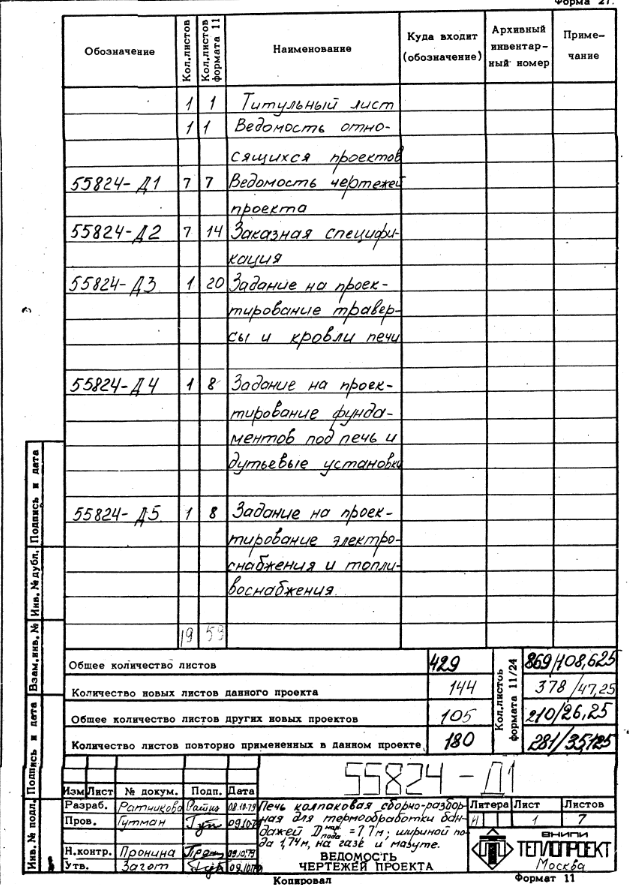 Форма 21.
Обозначение
Кол.листов
Кол.листов формата 11
Наименование
Куда входит (обозначение)
Архивный инвентар-ный номер
Приме-чание
1 1 Титульный лист
1 1 Ведомость отно-
сящихся проектов
55824-Д1 7 7 Ведомость чертежей
проекта
55824-Д2 7 14 Заказная специфи-
кация
55824-Д3 1 20 Задание на проек-
тирование травер-
сы и кровли печи
55824-Д4 1 8 Задание на проек-
тирование фунда-
ментов под печь и
дутьевые установки
55824-Д5 1 8 Задание на проек-
тирование электро-
снабжения и топли-
воснабжения.
19 59
Общее количество листов 429 869/108,625
Количество новых листов данного проекта 144 378/47,25
Общее количество листов других новых проектов 105 210/26,25
Количество листов повторно примененных в данном проекте 180 281/35,125
Кол.листов формата 11/24
Инв. № подл.
Подпись и дата
Взам.инв. №
Инв. № дубл.
Подпись и дата
55824-Д1
Изм Лист № докум. Подп. Дата
Разраб. Ратникова
Пров. Гутман
Н.контр. Пронина
Утв. Загот
Печь колпаковая сборно-разбор-
ная для термообработки бан-
дажей D пода = 7,7м; шириной по-
да 1,74м, на газе и мазуте.
ВЕДОМОСТЬ
ЧЕРТЕЖЕЙ ПРОЕКТА
Литера Лист Листов
И 1 7
ВНИПИ
ТЕПЛОПРОЕКТ
Москва
Копировал
Формат 11